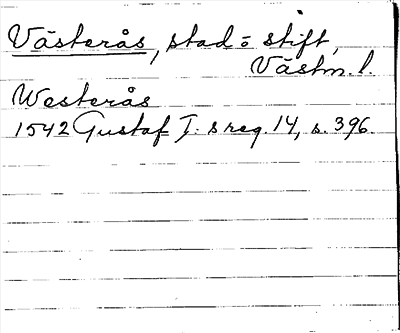 Västerås, stad o stift,
Västm. l.
Westerås
1542 Gustaf I:s reg. 14, s. 396.